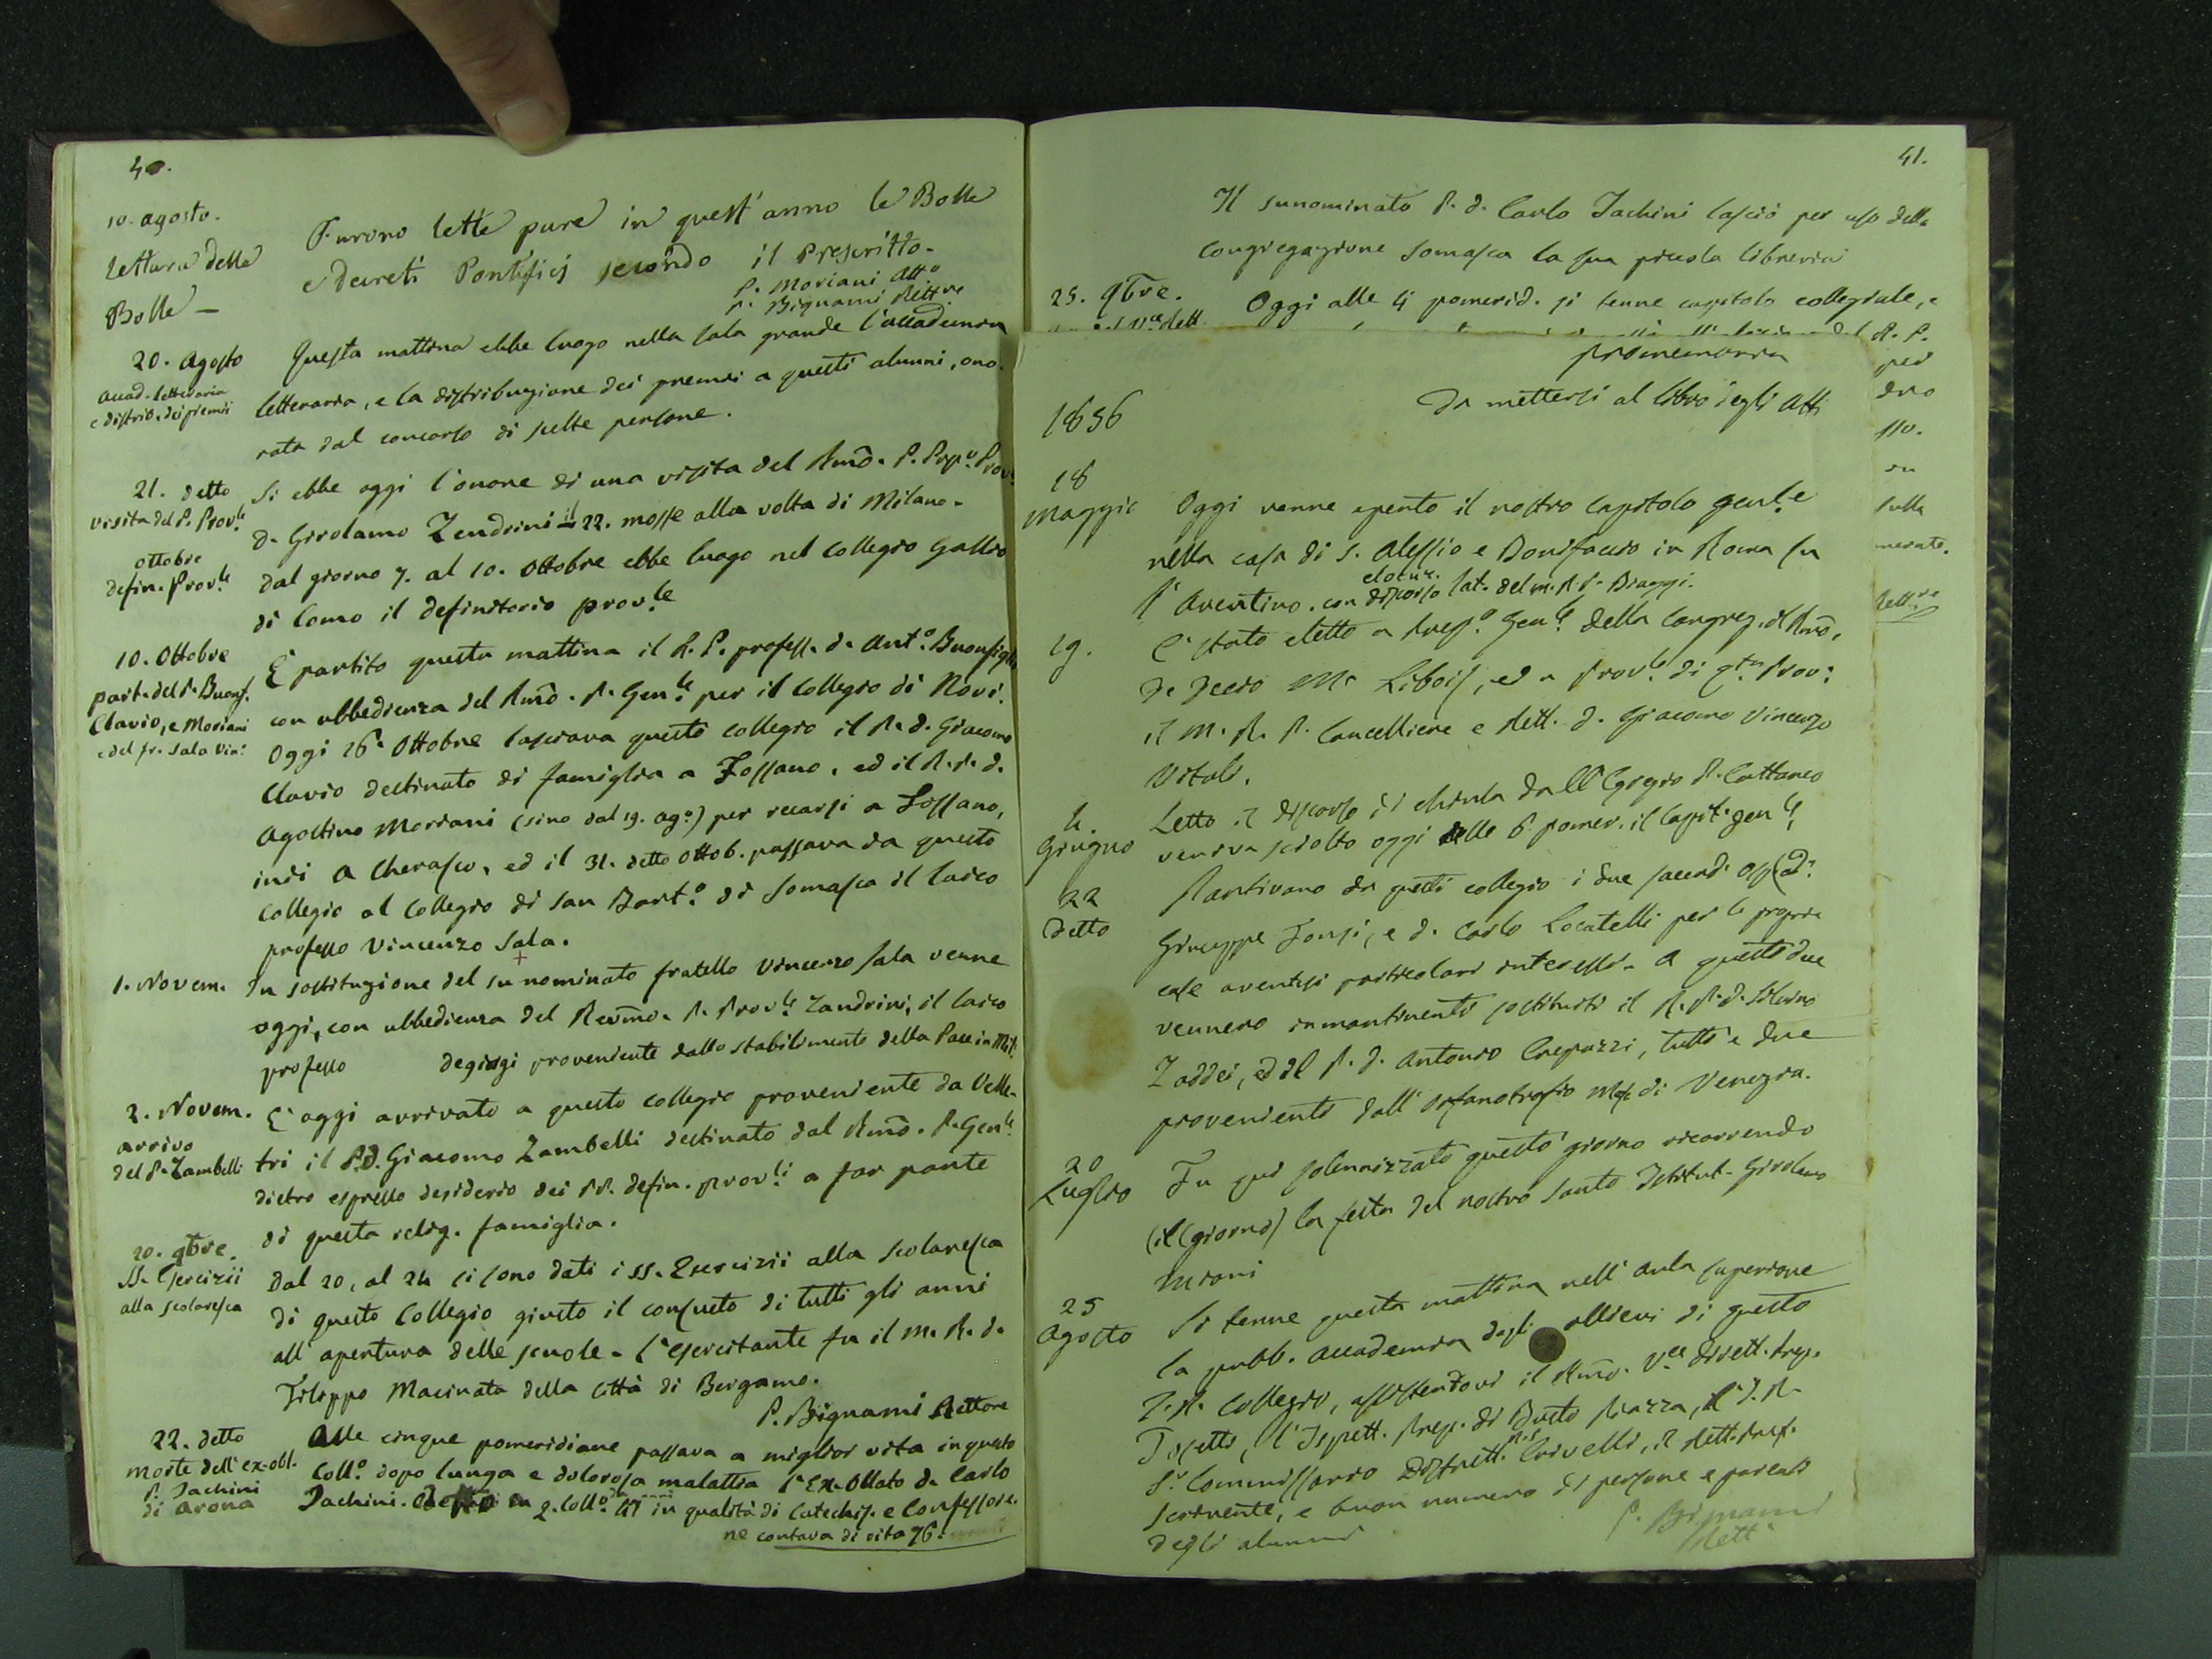 40.
10. agosto.
Lettura delle
Bolle —
Furono lette pure in quest'anno le Bolle
e Decreti Pontificj secondo il Prescritto.
P. Moriani Att.o
P. Bignami Rett.re
20. agosto
accad. letteraria
e distrib. dei premii
Questa mattina ebbe luogo nella sala grande l'accademia
letteraria, e la distribuzione dei premii a questi alunni, ono-
rata dal concorso di scelte persone.
21. detto
visita del P. Prov.le
Si ebbe oggi l'onore di una visita del Rmo. P. Prep.o Prov.
D. Girolamo Zendrini il 22. mosse alla volta di Milano.
ottobre
defin. Prov.le
Dal giorno 7. al 10. Ottobre ebbe luogo nel Collegio Gallio
di Como il definitorio prov.le
10. Ottobre
part. del P. Buonf.
Clavio, e Moriani
e del fr. Sala Vin.
È partito questa mattina il R. P. profess. D. Ant.o Buonfigli
con ubbedienza del Rmo. P. Gen.le per il Collegio di Novi.
Oggi 26. Ottobre lasciava questo collegio il P. D. Giacomo
Clavio destinato di famiglia a Fossano, ed il R. P. D.
Agostino Moriani (sino dal 19. ag.o) per recarsi a Fossano,
indi a Cherasco, ed il 31. detto ottob. passava da questo
Collegio al Collegio di San Bart.o di Somasca il laico
professo Vincenzo Sala.
1. Novem.
In sostituzione del sunominato fratello Vincenzo Sala venne
oggi, con ubbedienza del Revmo. P. Prov.le Zandrini, il laico
professo degiogi proveniente dallo stabilimento della Pace in Mil.
2. Novem.
arrivo
del P. Zambelli
È oggi arrivato a questo collegio proveniente da Velle-
tri il P. D. Giacomo Zambelli destinato dal Rmo. P. Gen.le
dietro espresso desiderio dei PP. defin. prov.li a far parte
di questa relig. famiglia.
20. 9bre.
SS. Esercizii
alla scolaresca
Dal 20, al 24 si sono dati i SS. Esercizii alla scolaresca
di questo Collegio giusto il consueto di tutti gli anni
all'apertura delle scuole. L'esercitante fu il M. R. D.
Filippo Macinata della Città di Bergamo.
P. Bignami Rettore
22. detto
morte dell'ex-obl.
P. Jachini
di Arona
Alle cinque pomeridiane passava a miglior vita in questo
Coll.o dopo lunga e dolorosa malattia l'Ex-Oblato D. Carlo
Jachini. in q. Coll.o in qualità di Catechis. e Confessore.
ne contava di vita 76.
41.
Il sunominato P. D. Carlo Jachini lasciò per uso della
Congregazione Somasca la sua piccola libreria
25. 9bre.
Oggi alle 4 pomerid. si tenne capitolo collegiale, e
R. P.
promemoria
per
Da mettersi al libro degli Atti
1856
18
Maggio
Oggi venne aperto il nostro Capitolo gen.le
nella casa di S. Alessio e Bonifacio in Roma su
l'Aventino. con discorso lat. del M. R. P. Biaggi.
19.
È stato eletto a Prep.o Gen.le della Congreg. il Rmo.
D. Decio Libois, ed a Prov.le di q.ta Prov.
il M. R. P. Cancelliere e Rett. D. Giacomo Vincenzo
Vitali.
4.
Giugno
Letto il discorso di chiusa dall'Egregio P. Cattaneo
veniva sciolto oggi alle 6 pomer. il Capit. gen.le
22
Detto
Partivano da questo collegio i due sacerdi ospi
Giuseppe Fonsi, e D. Carlo Locatelli per le proprie
case aventisi particolari interessi. A questi due
vennero inmantinenti sostituiti il R. P. D. Silvino
Zaddei, ed il P. D. Antonio Crepazzi, tutti e due
provenienti dall'orfanotrofio Mas. di Venezia.
20
Luglio
Fu qui solennizzato questo giorno ricorrendo
(il giorno) la festa del nostro Santo Istitut. Girolamo
Miani
25
Agosto
Si tenne questa mattina nell'aula superiore
la pubb. accademia degli allievi di questo
I. R. Collegio, assistendovi il Rmo. V.ce Dirett. Prep.
Tosetti, l'Ispett. Prep. di Busto Piazza, l'I. R.
S.r Commissario Distrett. Crivelli, il Rett. Pref.
scrivente, e buon numero di persone e parenti
degli alunni
P. Bignami
Rett.